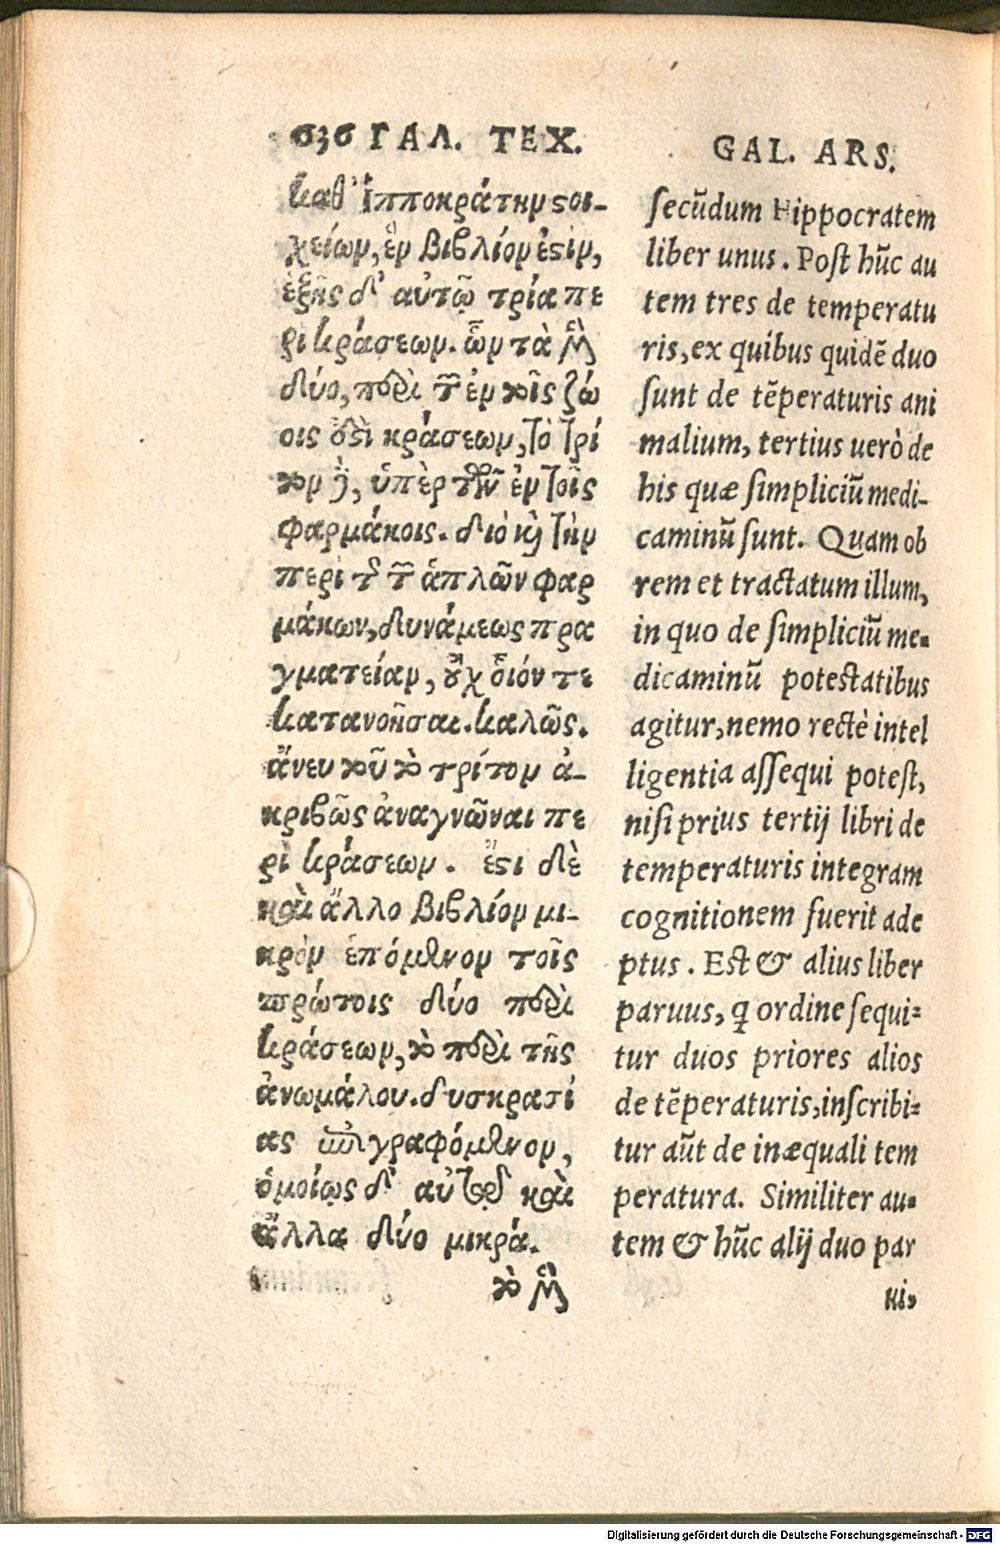 σζσ ΓΑΛ. ΤΕΧ.
καθ' Ἱπποκράτην στοι-
χείων, ἓν βιβλίον ἐστὶν,
ἑξῆς δ' αὐτῷ τρία πε
ρὶ κράσεων. ὧν τὰ μὲν
δύο, περὶ τῶν ἐν τοῖς ζώ
οις ἐστὶ κράσεων, τὸ τρί
τον δὲ, ὑπὲρ τῶν ἐν τοῖς
φαρμάκοις. διὸ καὶ τὴν
περὶ τῆς τῶν ἁπλῶν φαρ
μάκων, δυνάμεως πρα
γματείαν, οὐχ οἷόν τε
κατανοῆσαι καλῶς.
ἄνευ τοῦ τὸ τρίτον ἀ-
κριβῶς ἀναγνῶναι πε
ρὶ κράσεων. ἔστι δὲ
καὶ ἄλλο βιβλίον μι-
κρὸν ἑπόμενον τοῖς
πρώτοις δύο περὶ
κράσεων, τὸ περὶ τῆς
ἀνωμάλου. δυσκρασί
ας ἐπιγραφόμενον,
ὁμοίως δ' αὐτῷ καὶ
ἄλλα δύο μικρά.
τὸ μὲν
GAL. ARS.
secũdum Hippocratem
liber unus. Post hũc au
tem tres de temperatu
ris, ex quibus quidẽ duo
sunt de tẽperaturis ani
malium, tertius uerò de
his quæ simpliciũ medi-
caminũ sunt. Quam ob
rem et tractatum illum,
in quo de simpliciũ me-
dicaminũ potestatibus
agitur, nemo rectè intel
ligentia assequi potest,
nisi prius tertij libri de
temperaturis integram
cognitionem fuerit ade
ptus. Est & alius liber
paruus, q ordine sequi-
tur duos priores alios
de tẽperaturis, inscribi-
tur aũt de inæquali tem
peratura. Similiter au-
tem & hũc alij duo par
ui,
Digitalisierung gefördert durch die Deutsche Forschungsgemeinschaft - DFG